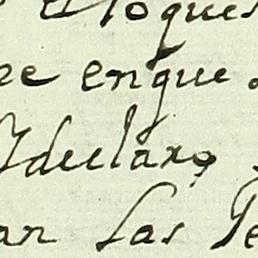 toques
re en que
Y declaro
an las Te